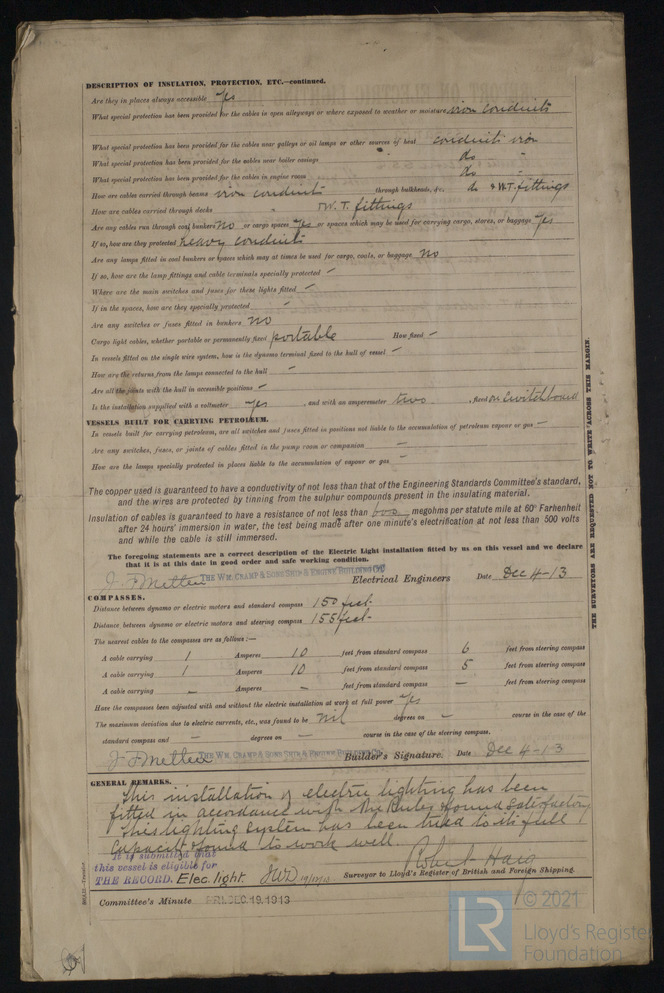 DESCRIPTION OF INSULATION, PROTECTION, ETC.—continued.
Are they in places always accessible yes
What special protection has been provided for the cables in open alleyways or where exposed to weather or moisture iron conduits
What special protection has been provided for the cables near galleys or oil lamps or other sources of heat conduits iron
What special protection has been provided for the cables near boiler casings do -
What special protection has been provided for the cables in engine room do -
How are cables carried through beams iron conduits through bulkheads, &c. do & W.T. fittings
How are cables carried through decks W.T. fittings
Are any cables run through coal bunkers no or cargo spaces yes or spaces which may be used for carrying cargo, stores, or baggage yes
If so, how are they protected heavy conduits
Are any lamps fitted in coal bunkers or spaces which may at times be used for cargo, coals, or baggage no
If so, how are the lamp fittings and cable terminals specially protected -
Where are the main switches and fuses for these lights fitted -
If in the spaces, how are they specially protected -
Are any switches or fuses fitted in bunkers no
Cargo light cables, whether portable or permanently fixed portable How fixed -
In vessels fitted on the single wire system, how is the dynamo terminal fixed to the hull of vessel -
How are the returns from the lamps connected to the hull -
Are all the joints with the hull in accessible positions -
Is the installation supplied with a voltmeter yes , and with an amperemeter two , fixed on switchboard
VESSELS BUILT FOR CARRYING PETROLEUM.
In vessels built for carrying petroleum, are all switches and fuses fitted in positions not liable to the accumulation of petroleum vapour or gas -
Are any switches, fuses, or joints of cables fitted in the pump room or companion -
How are the lamps specially protected in places liable to the accumulation of vapour or gas -
The copper used is guaranteed to have a conductivity of not less than that of the Engineering Standards Committee's standard,
and the wires are protected by tinning from the sulphur compounds present in the insulating material.
Insulation of cables is guaranteed to have a resistance of not less than 600 megohms per statute mile at 60° Farhenheit
after 24 hours' immersion in water, the test being made after one minute's electrification at not less than 500 volts
and while the cable is still immersed.
The foregoing statements are a correct description of the Electric Light installation fitted by us on this vessel and we declare
that it is at this date in good order and safe working condition.
J. F. Metten THE WM. CRAMP & SONS SHIP & ENGINE BUILDING CO. Electrical Engineers Date Dec 4-13
COMPASSES.
Distance between dynamo or electric motors and standard compass 150 feet
Distance between dynamo or electric motors and steering compass 155 feet
The nearest cables to the compasses are as follows:—
A cable carrying 1 Amperes 10 feet from standard compass 6 feet from steering compass
A cable carrying 1 Amperes 10 feet from standard compass 5 feet from steering compass
A cable carrying - Amperes - feet from standard compass - feet from steering compass
Have the compasses been adjusted with and without the electric installation at work at full power yes
The maximum deviation due to electric currents, etc., was found to be nil degrees on - course in the case of the
standard compass and - degrees on - course in the case of the steering compass.
J. F. Metten THE WM. CRAMP & SONS SHIP & ENGINE BUILDING CO. Builder's Signature. Date Dec 4-13
GENERAL REMARKS.
This installation of electric lighting has been
fitted in accordance with the Rules & found satisfactory
This lighting system has been tried to its full
capacity & found to work well.
It is submitted that
this vessel is eligible for
THE RECORD. Elec. light. JWD 19/12/13
Robert Haig
Surveyor to Lloyd's Register of British and Foreign Shipping.
Committee's Minute FRI. DEC. 19. 1913
THE SURVEYORS ARE REQUESTED NOT TO WRITE ACROSS THIS MARGIN.
LR
© 2021
Lloyd's Register
Foundation